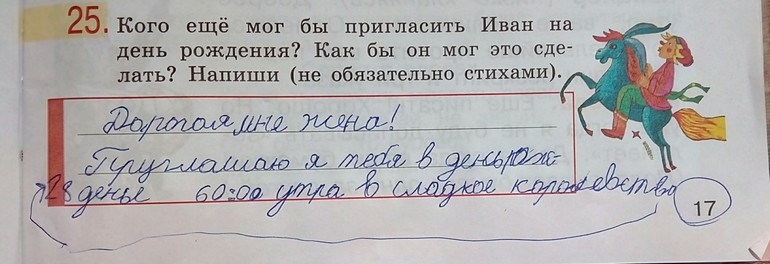 25. Кого ещё мог бы пригласить Иван на
день рождения? Как бы он мог это сде-
лать? Напиши (не обязательно стихами).
Дорогая мне жена!
Пруглашаю я тебя в деньрож-
денье 60:00 утра в сладкое королевство
17